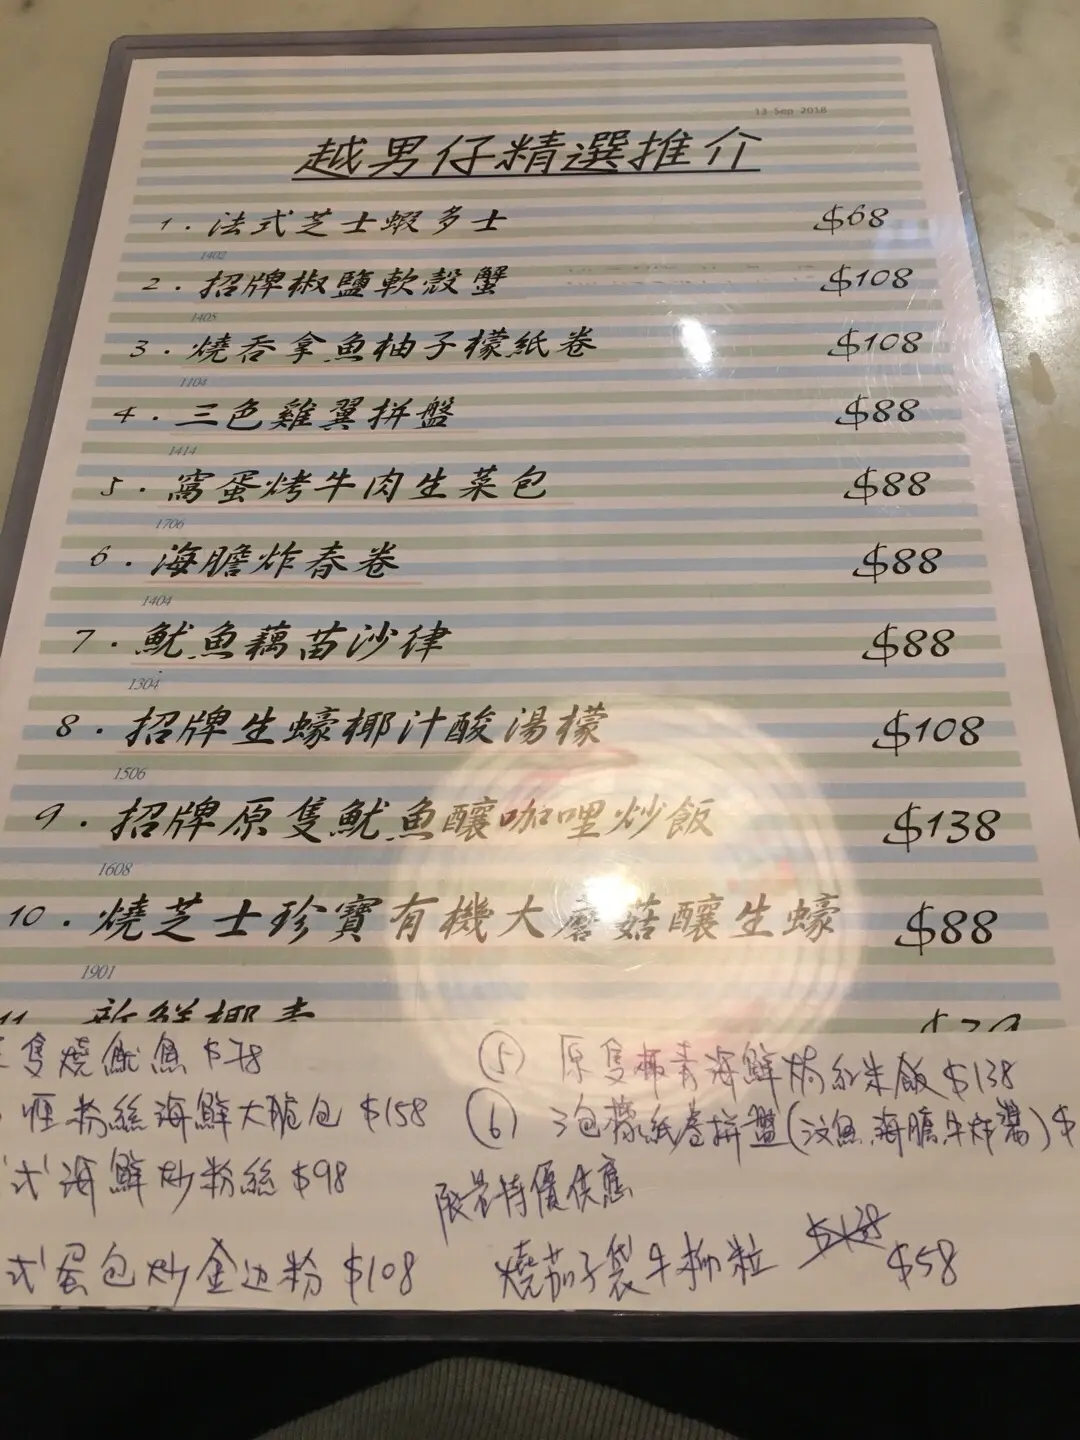 13 Sep 2018
越男仔精選推介
1. 法式芝士蝦多士 $68
1402
2. 招牌椒鹽軟殼蟹 $108
1405
3. 燒吞拿魚柚子檬紙卷 $108
1104
4. 三色雞翼拼盤 $88
1414
5. 窩蛋烤牛肉生菜包 $88
1706
6. 海膽炸春卷 $88
1404
7. 魷魚藕苗沙律 $88
1304
8. 招牌生蠔椰汁酸湯檬 $108
1506
9. 招牌原隻魷魚釀咖哩炒飯 $138
1608
10. 燒芝士珍寶有機大磨菇釀生蠔 $88
1901
11. 新鮮椰青
隻燒魷魚 $78
粉絲海鮮大脆包 $158
式海鮮炒粉絲 $98
式蛋包炒金边粉 $108
⑤ 原隻椰青海鮮焗紅米飯 $138
⑥ 檬紙卷拼盤
限量特優供應
燒茄子袋牛柳粒 $138 $58